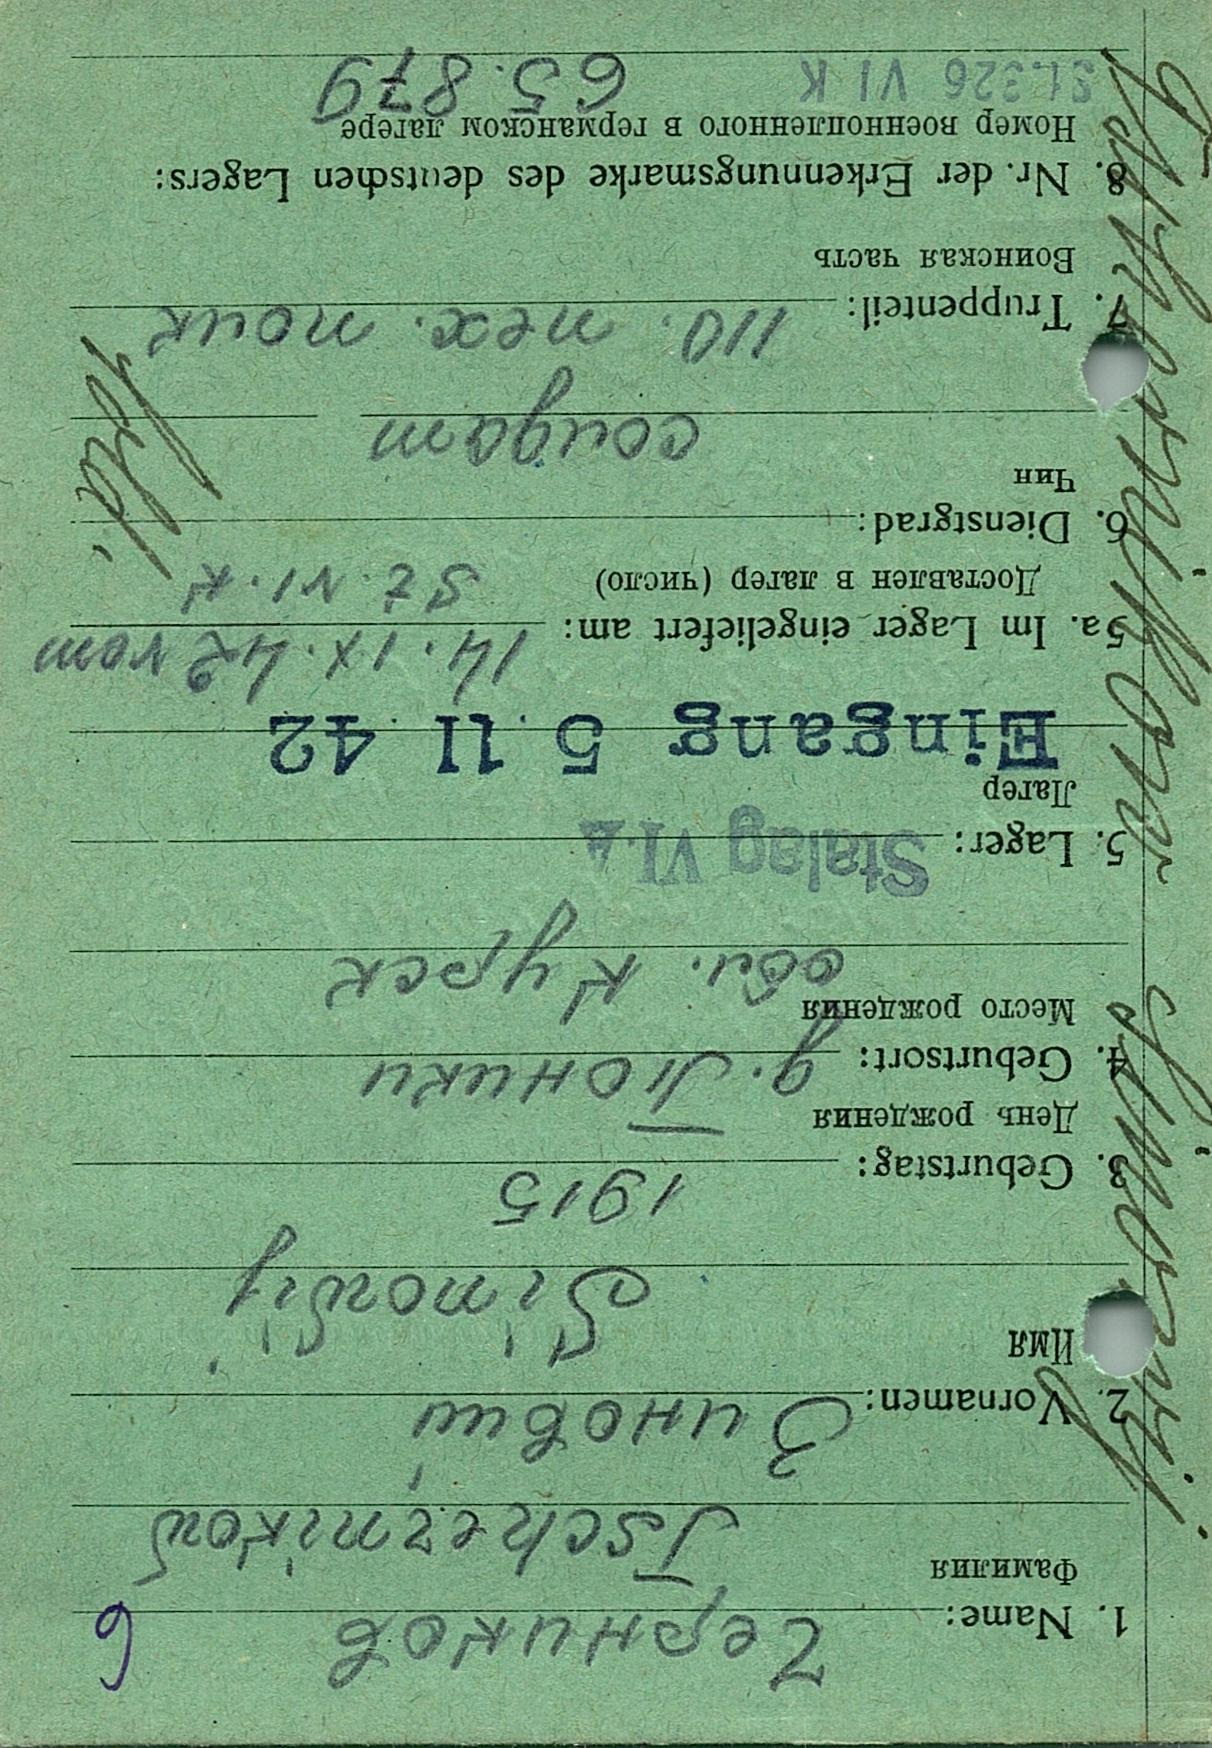 1. Name: Черников
Фамилия
Tschernikow
2. Vornamen: Зиновий
Имя
3. Geburtstag: 1915
День рождения
4. Geburtsort: д. Тоники
Место рождения
обл. Курск
5. Lager: Stalag VI A
Лагер
Eingang 5. 11. 42
5a. Im Lager eingeliefert am: 14. IX. 42 vom
Доставлен в лагер (число)
St. VI. K
6. Dienstgrad:
Чин
солдат
Sold.
7. Truppenteil: 110. пех. полк
Воинская часть
8. Nr. der Erkennungsmarke des deutschen Lagers:
Номер военнопленного в германском лагере
St. 326 VI K 65.879
Tschernikow Sinowij
6